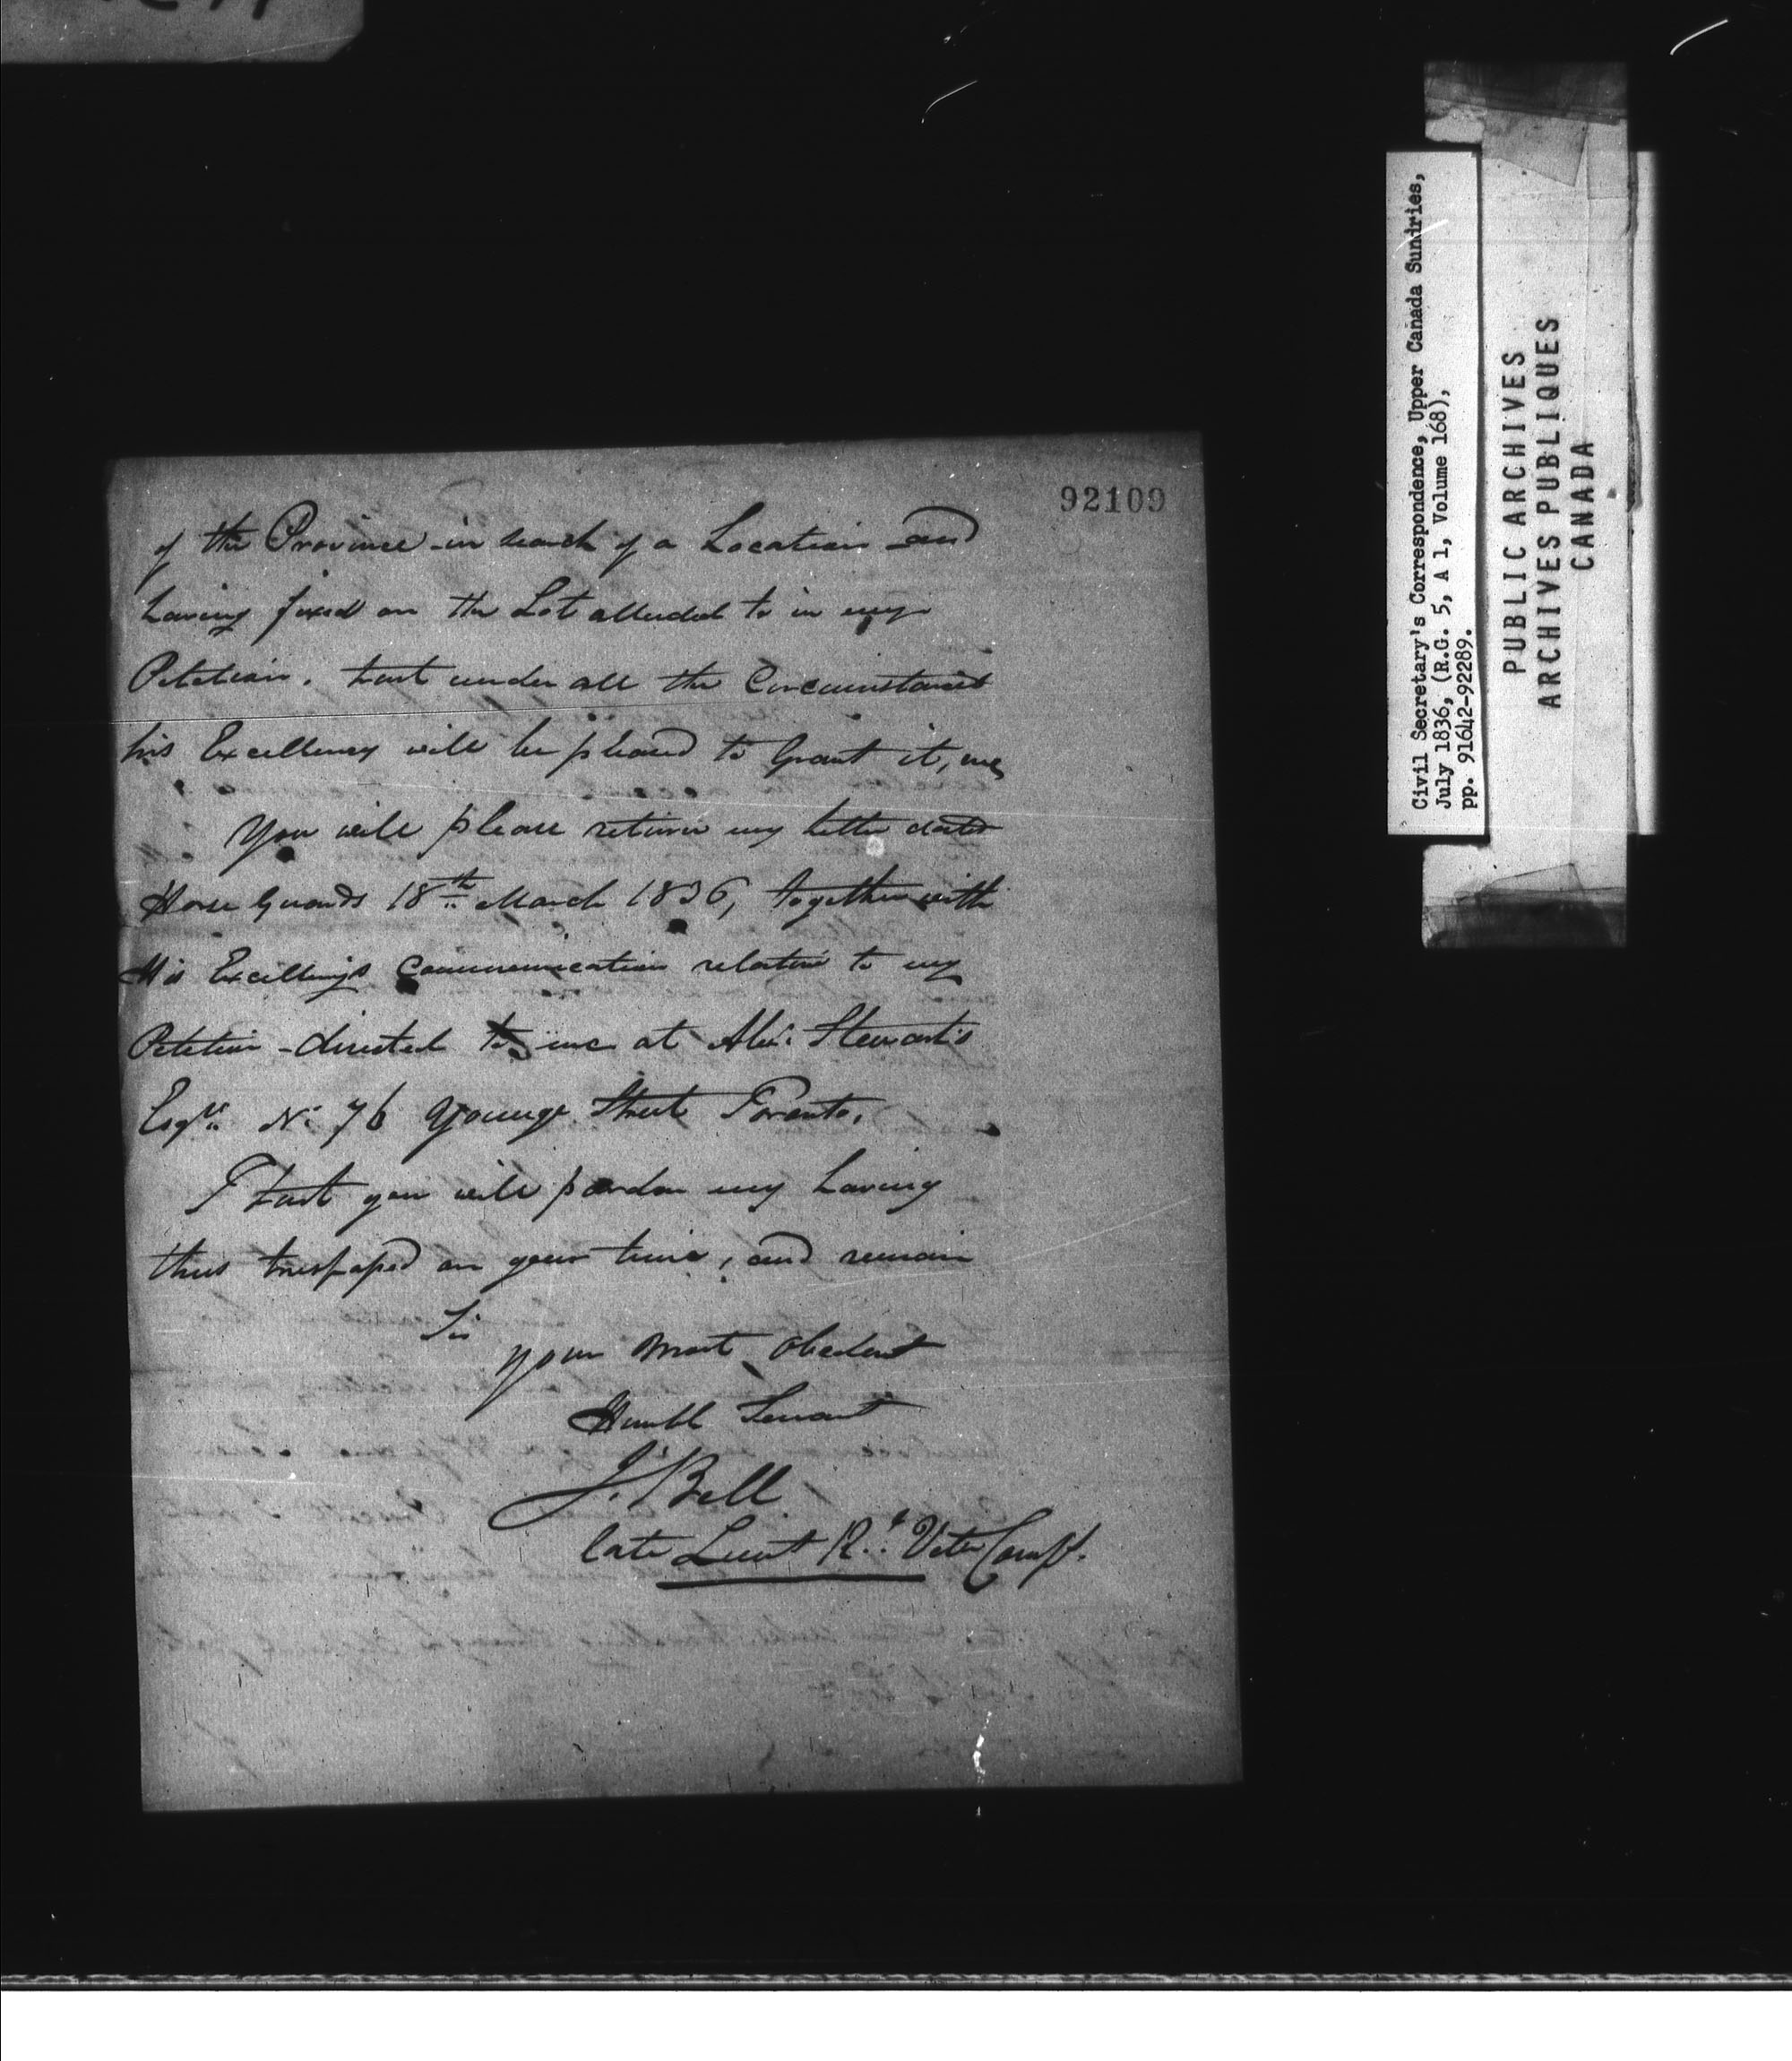 92109
of the Province in search of a Location and
having fixed on the Lot alluded to in my
Petition. trust under all the Circumstances
his Excellency will be pleased to Grant it, me
You will please return my letter dated
Horse Guards 18th March 1836, together with
His Excellenys Communication relative to my
Petition directed to me at Alexr Stewart's
Esqre No 76 Younge Street Toronto.
I trust you will pardon my having
thus trespassed on your time, and remain
Sir
your most obedient
Humble Servant
J. Bell
late Lieut Rl Vetn Compy.
Civil Secretary's Correspondence, Upper Canada Sundries,
July 1836, (R.G. 5, A 1, Volume 168),
pp. 91642-92289.
PUBLIC ARCHIVES
ARCHIVES PUBLIQUES
CANADA